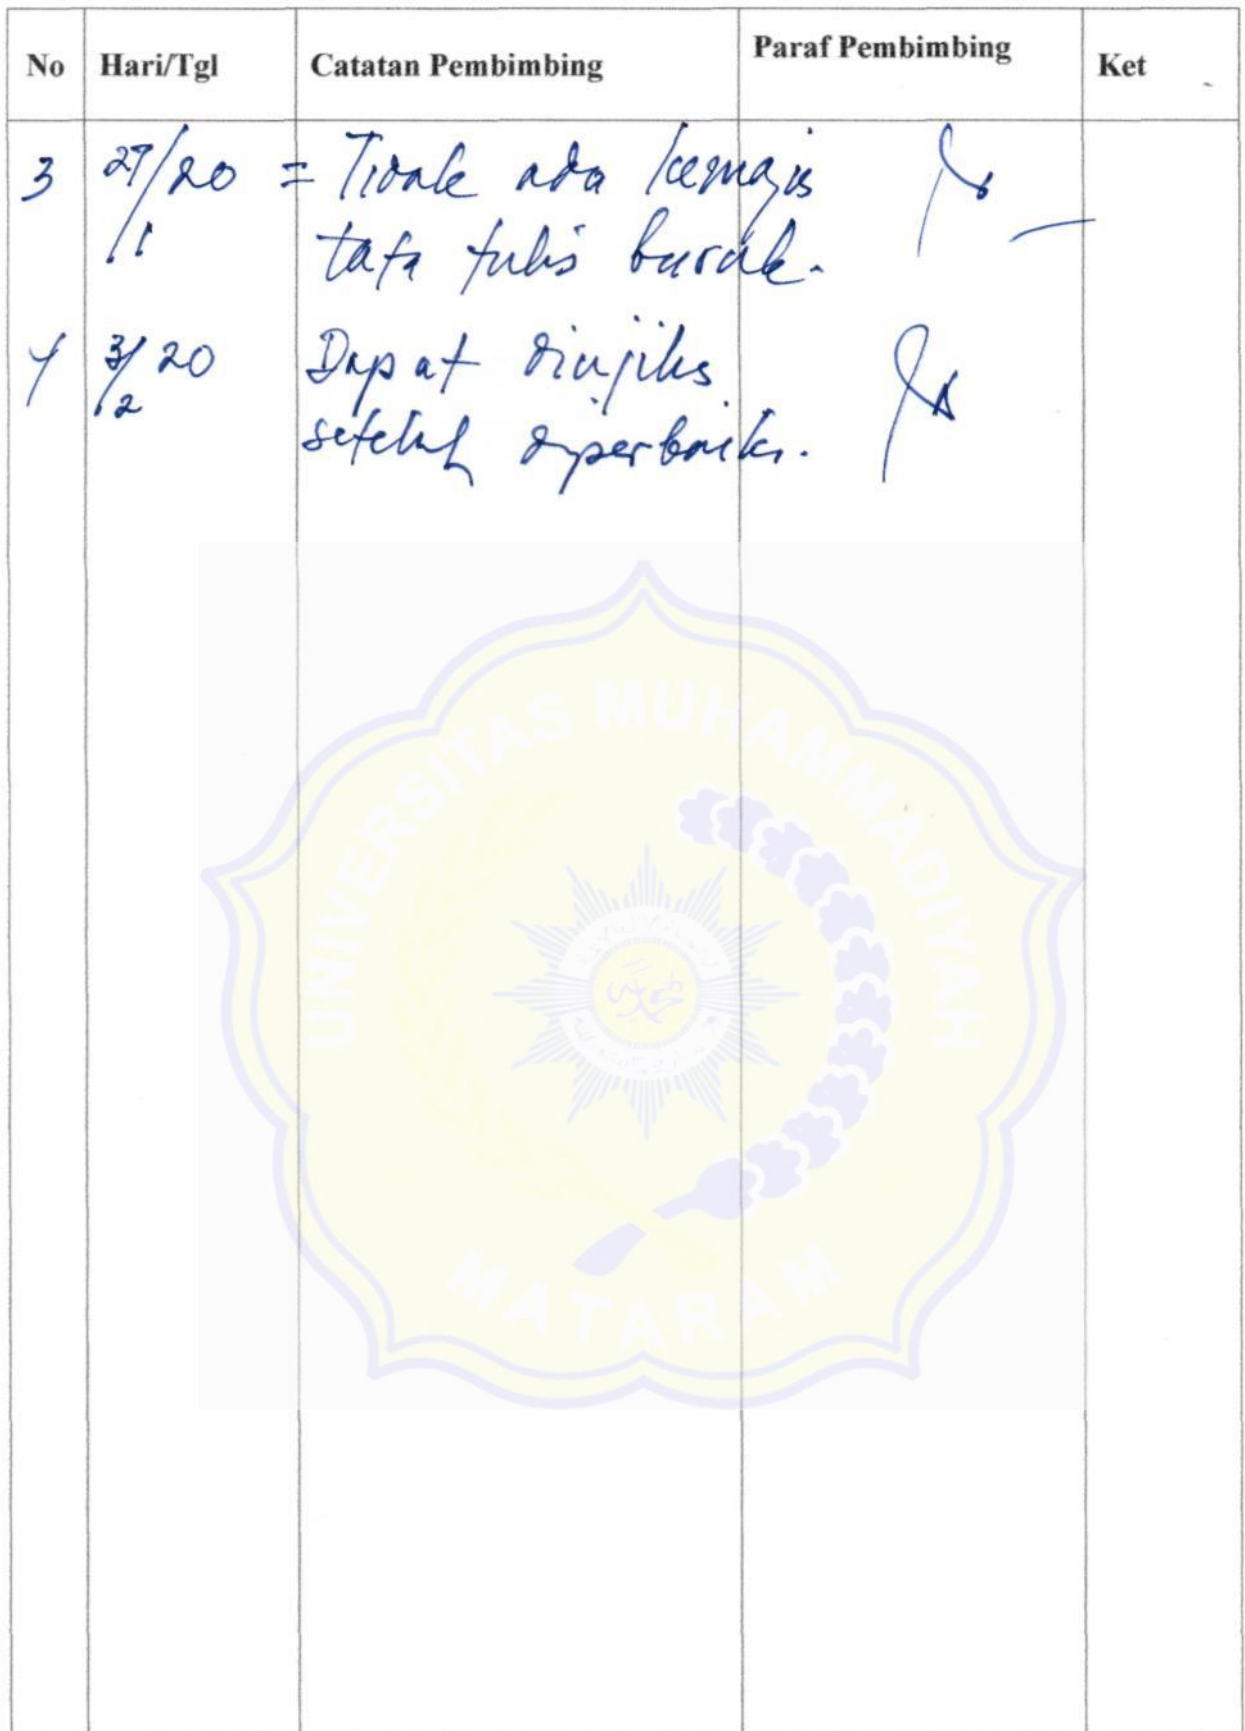 No Hari/Tgl Catatan Pembimbing Paraf Pembimbing Ket
3 27/1 20 = Tidak ada
tata tulis buruk.
4 3/2 20 Dapat
setelah diperbaiki.
UNIVERSITAS MUHAMMADIYAH
MATARAM